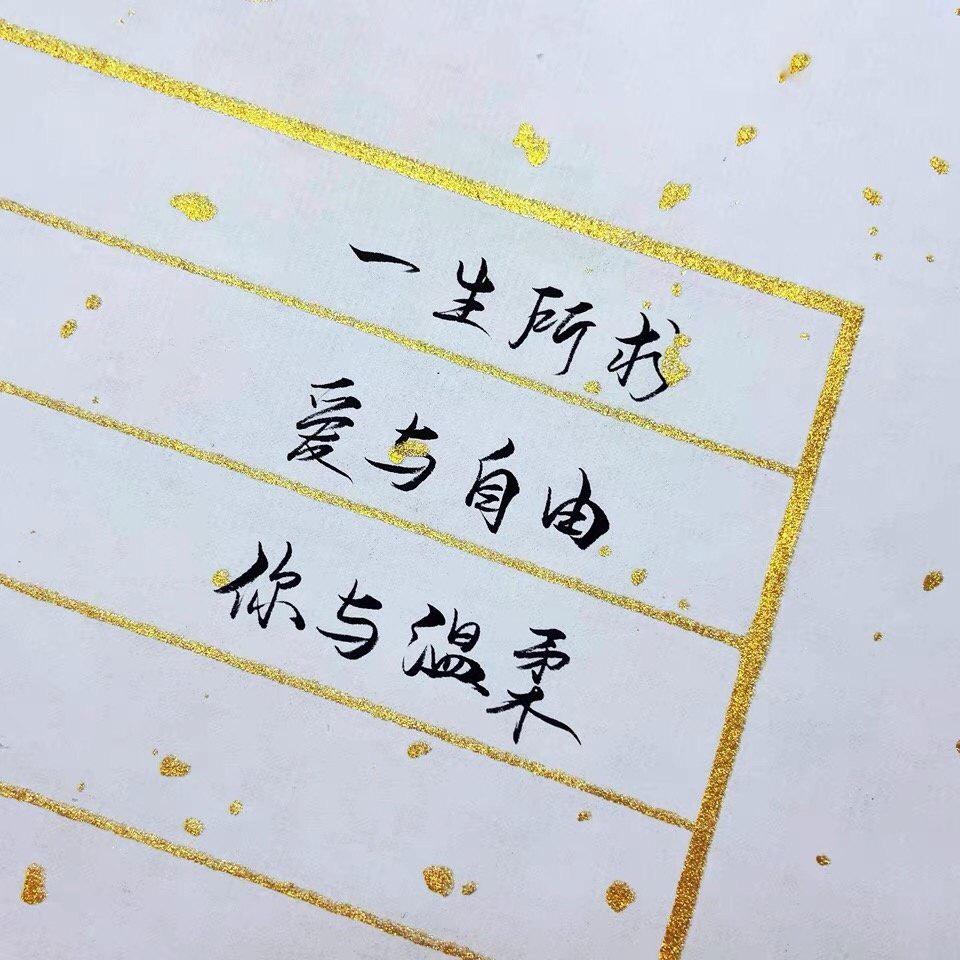 一生所求
爱与自由
你与温柔